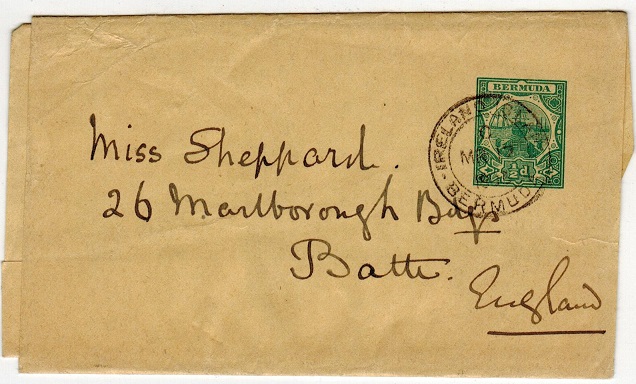 BERMUDA
½d
IRELAND
BERMUDA
Miss Sheppard.
26 Marlborough Bdgs
Bath.
England